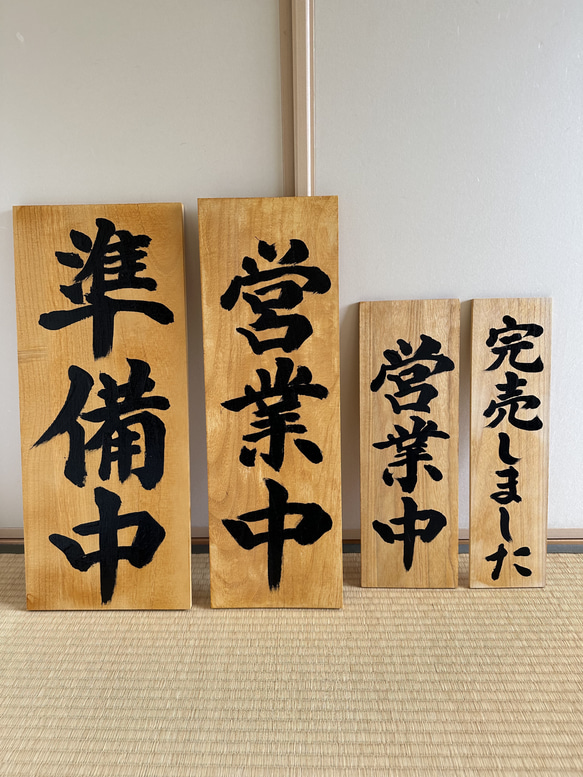 準備中
営業中
営業中
完売しました